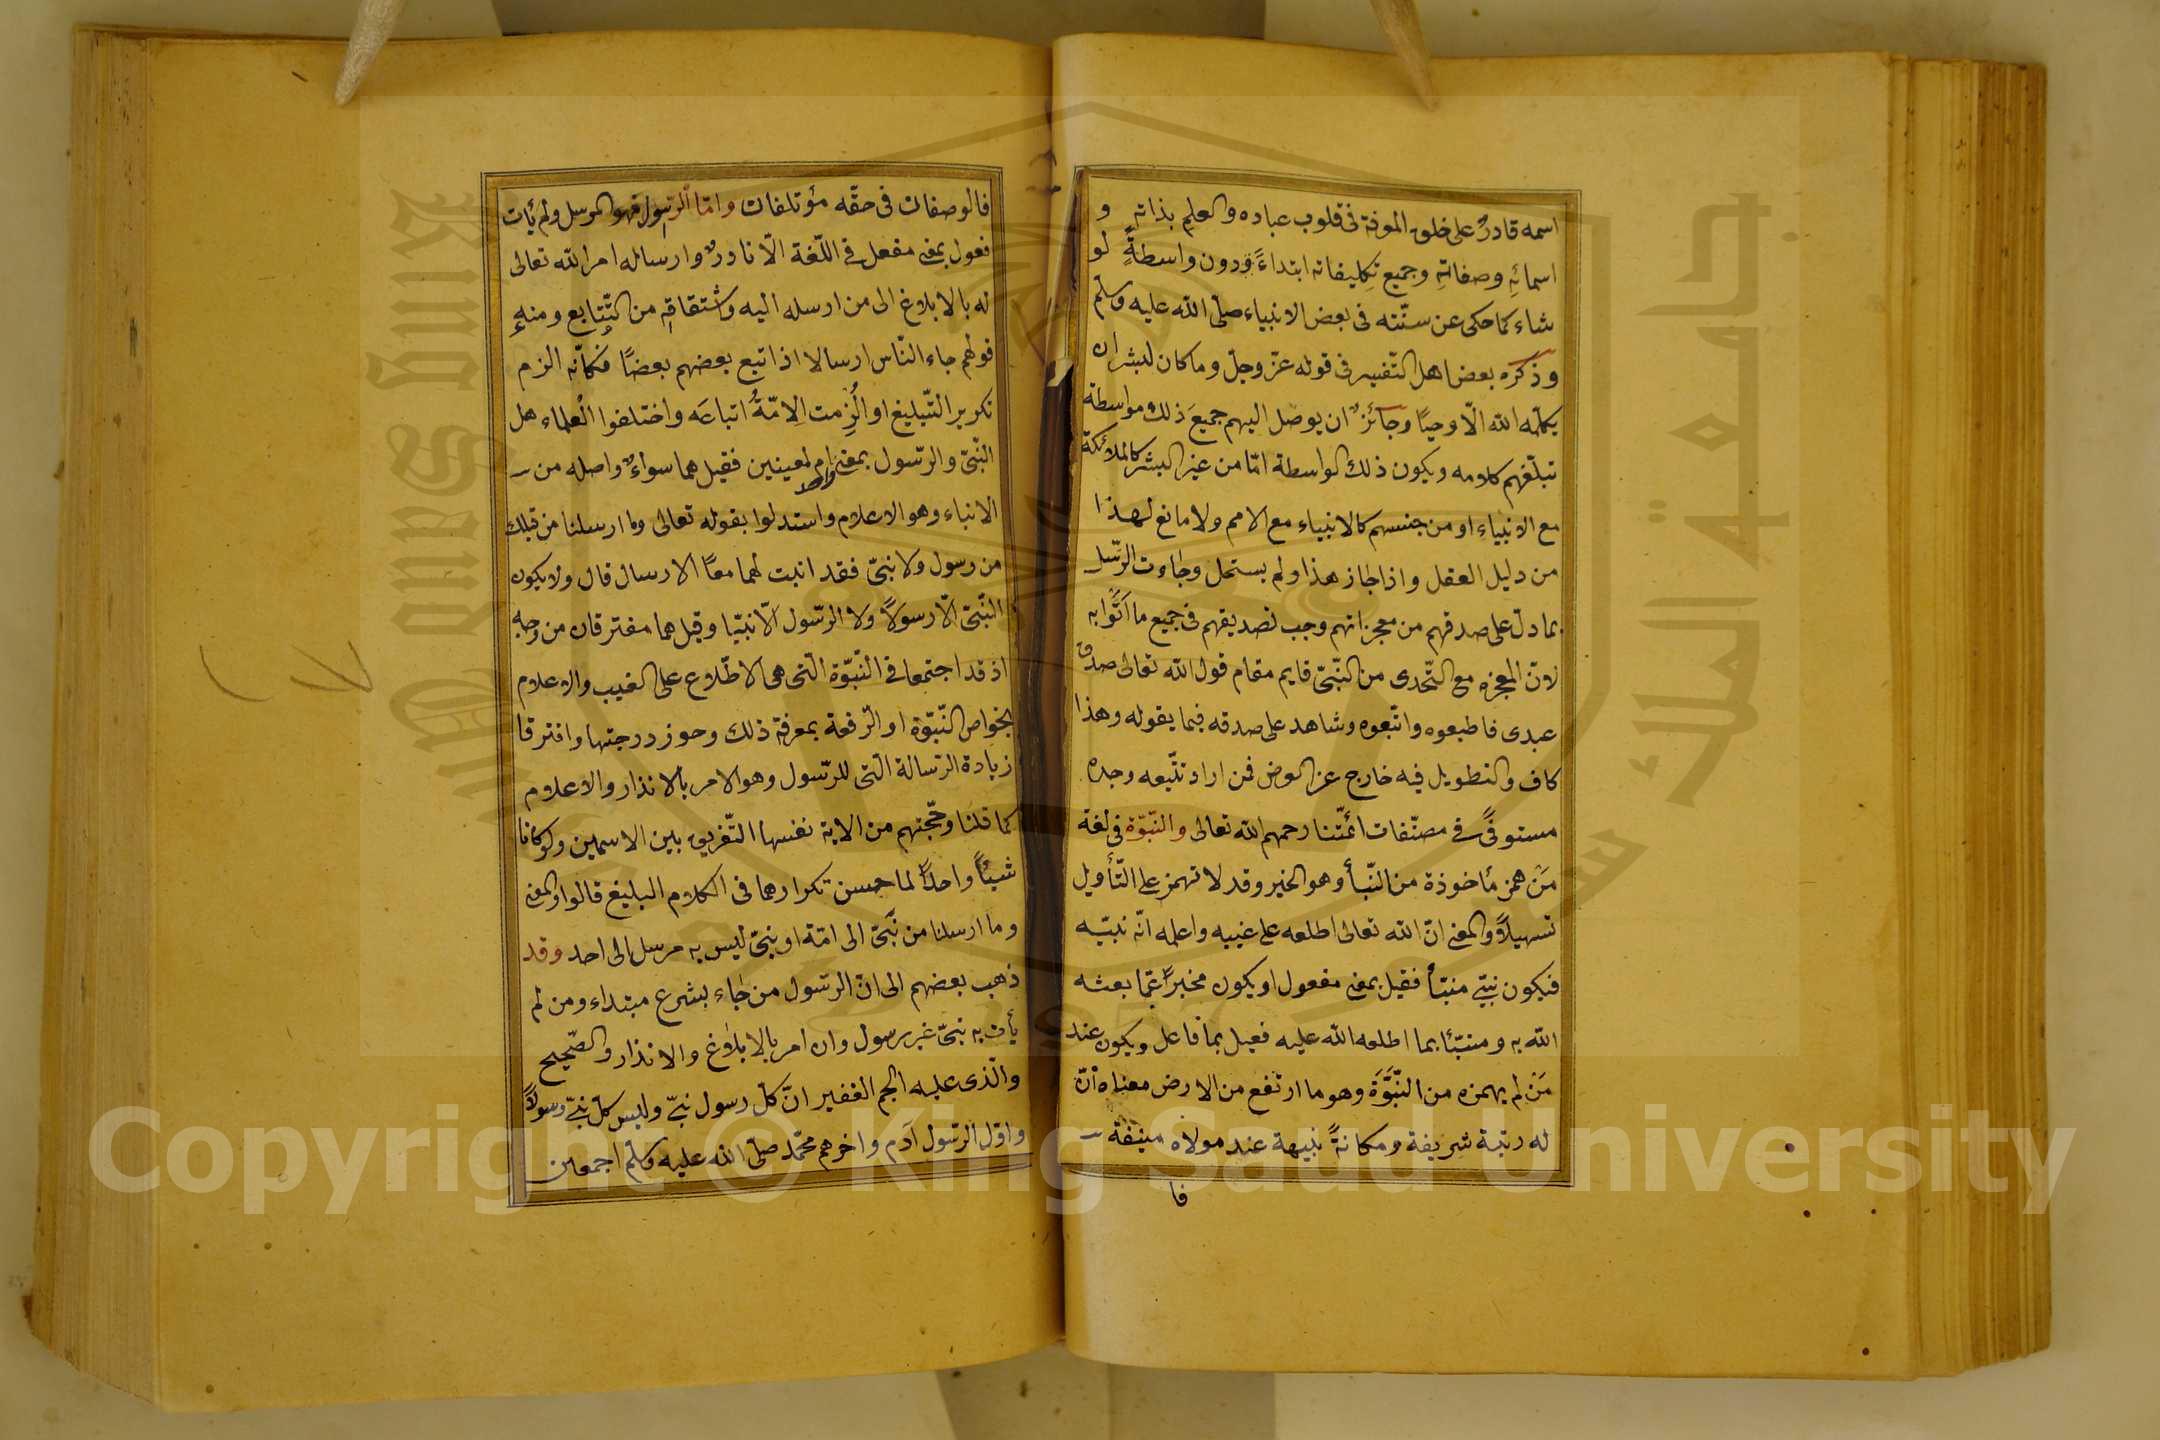 اسمه قادرٌ على خلق المعرفة فى قلوب عباده والعلم بذاته و
اسمائِهِ وصفاتِهِ وجميع تكليفاته ابتداءً دون واسطةٍ لو
شاء كما حكى عن سنّته فى بعض الانبياء صلّى الله عليه وسلّم
وذكره بعض اهل التّفسير فى قوله عزّ وجلّ وما كان لبشر ان
يكلّمه الله الّا وحيًا وجائزٌ ان يوصل اليهم جميعَ ذلك بواسطة
تبلّغهم كلامه ويكون ذلك الواسطة امّا من غير البشر كالملائكة
مع الانبياء او من جنسهم كالانبياء مع الامم ولا مانع لهذا
من دليل العقل واذا جاز هذا ولم يستحل وجاءت الرّسل
بما دلّ على صدقهم من معجزاتهم وجب تصديقهم فى جميع ما اَتَوا به
لانّ المعجزه مع التّحدى من النّبىّ قايم مقام قول الله تعالى صدق
عبدى فاطيعوه واتّبعوه وشاهد على صدقه فيما يقوله وهذا
كاف والتطويل فيه خارج عن الغرض فمن اراد تتبّعه وجده
مستوفًى فى مصنّفات ائمّتنا رحمهم الله تعالى والنّبوّة فى لغة
مَنْ همز مأخوذة من النّبأ وهو الخبر وقد لا تهمز على التّأويل
تسهيلاً والمعنى انّ الله تعالى اطلعه على غيبه واعلمه انّه نبيّه
فيكون نبىّ منبّأ فقيل بمعنى مفعول او يكون مخبراً عمّا بعثه
الله به ومنبّئا بما اطلعه الله عليه فعيل بمعنى فاعل ويكون عند
مَنْ لم يهمزه من النّبْوَةِ وهو ما ارتفع من الارض معناه انّ
له رتبة شريفة ومكانةً نبيهة عند مولاه منيفة
فا
فالوصفان فى حقّه مؤتلفان وامّا الرّسول فهو المرسل ولم يأت
فعول بمعنى مفعل فى اللّغة الّا نادرٌ وارساله امر الله تعالى
له بالابلاغ الى من ارسله اليه واشتقاقه من التّتابع ومنه
قولهم جاء النّاس ارسالا اذا تبع بعضهم بعضًا فكأنّه الزم
تكرير التّبليغ او اُلْزِمت الامّةُ اتباعَه واختلفوا العلماء هل
النّبىّ والرّسول بمعنى واحد ام لمعنيين فقيل هما سواءٌ واصله من
الانباء وهو الاعلام واستدلوا بقوله تعالى وما ارسلنا من قبلك
من رسول ولا نبىّ فقد اثبت لهما معًا الارسال قال ولا يكون
النّبىّ الّا رسولاً ولا الرّسول الّا نبيّا وقيل هما مفترقان من وجه
اذ قد اجتمعا فى النّبوّة الّتى هى الاطّلاع على الغيب والاعلام
بخواص النّبوّة او الرّفعة بمعرفة ذلك وحوز درجتها وافترقا
زيادة الرّسالة الّتى للرّسول وهو الامر بالانذار والاعلام
كما قلنا وحجّتهم من الاية نفسها التّفريق بين الاسمين ولو كانا
شيئاً واحداً لما حسن تكرارهما فى الكلام البليغ قالوا والمعنى
وما ارسلنا من نبىّ الى امّة او نبىّ ليس به مرسل الى احد وقد
ذهب بعضهم الى انّ الرّسول من جاء بشرع مبتداء ومن لم
يأت به نبىّ غير رسول وان امر بالابلاغ والانذار والصّحيح
والّذى عليه الجم الغفير انّ كلّ رسول نبىّ وليس كلّ نبىّ رسولاً
واوّل الرّسول آدم واخرهم محمّد صلّى الله عليه وسلّم اجمعين
جامعة الملك سعود
King Saud University
1957
Copyright © King Saud University